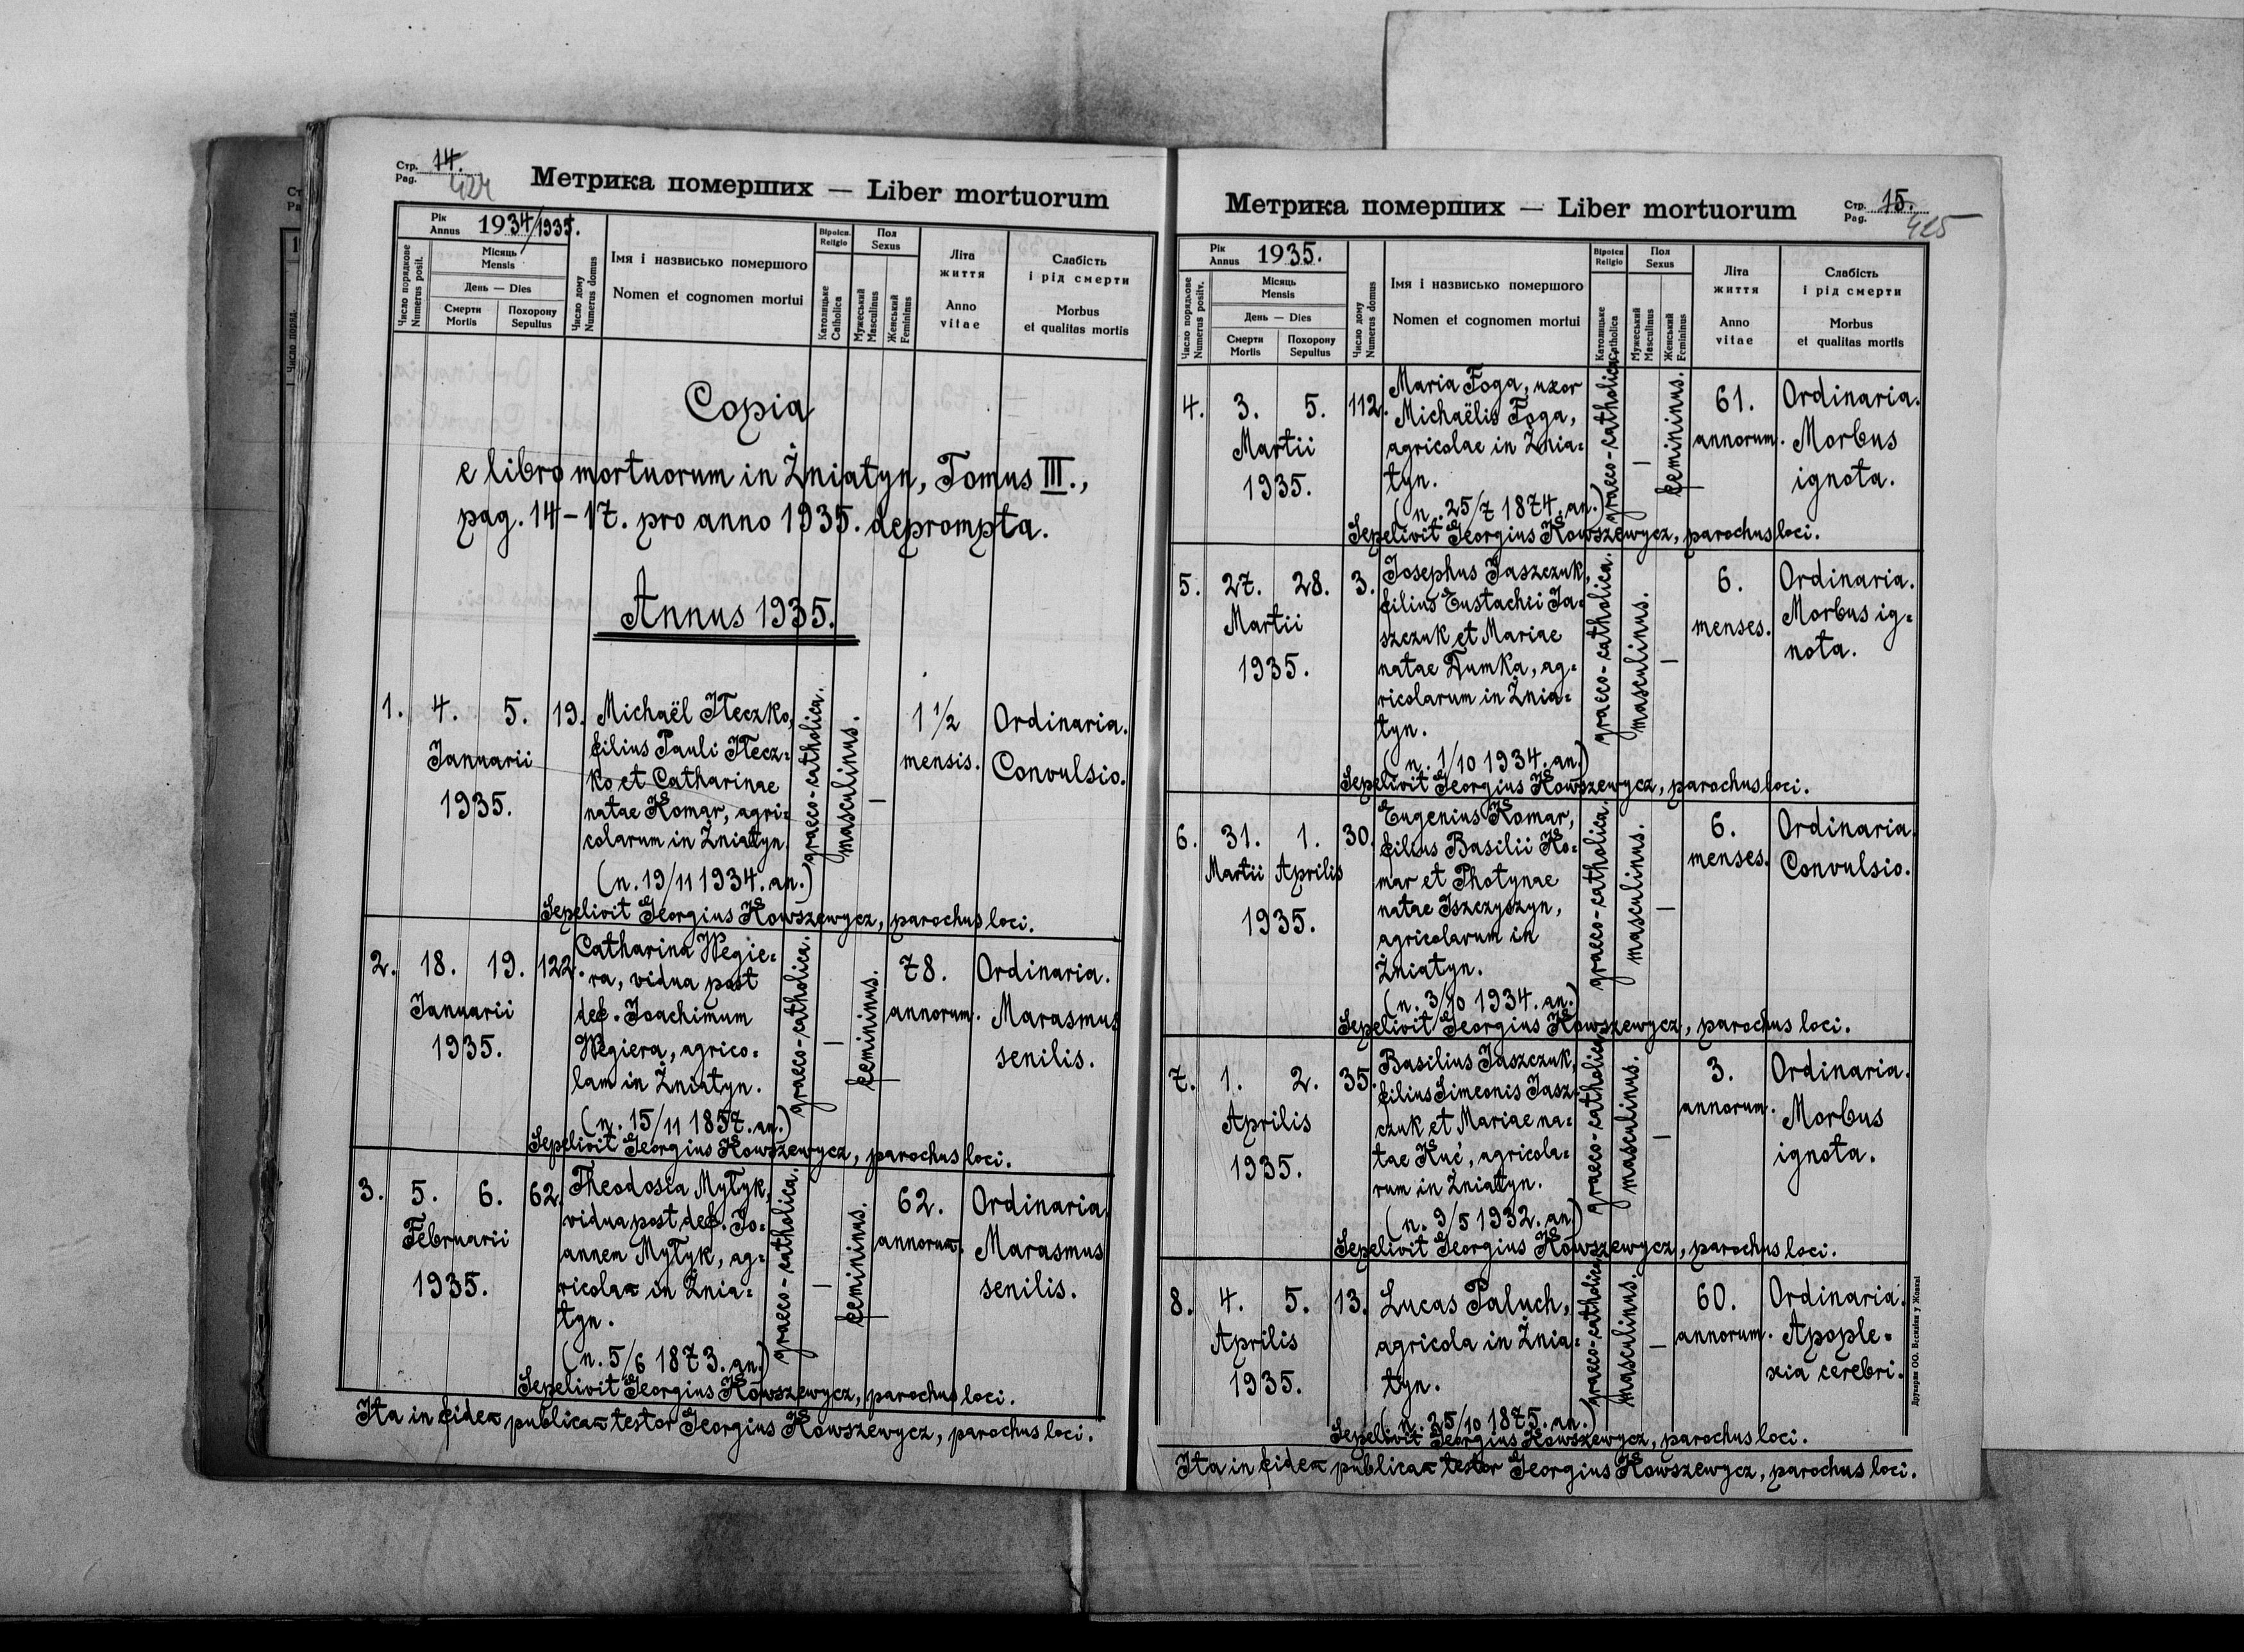 Стр. 14.
Pag.
424
Метрика померших — Liber mortuorum
Рік
Annus 1934/1935.
Число порядкове
Numerus posit.
Місяць
Mensis
День — Dies
Смерти
Mortis
Похорону
Sepultus
Число дому
Numerus domus
Імя і назвисько помершого
Nomen et cognomen mortui
Віроісп.
Religio
Католицьке
Catholica
Пол
Sexus
Мужеський
Masculinus
Женський
Femininus
Літа
життя
Anno
vitae
Слабість
і рід смерти
Morbus
et qualitas mortis
Copia
e libro mortuorum in Żniatyn, Tomus III.,
pag. 14-17. pro anno 1935. deprompta.
Annus 1935.
1. 4. 5. 19.
Januarii
1935.
Michaël Heczko,
filius Pauli Hecz=
ko et Catharinae
natae Komar, agri=
colarum in Żniatyn.
(n. 19/11 1934. an.)
graeco-catholica.
masculinus.
—
1 1/2
mensis.
Ordinaria.
Convulsio.
Sepelivit Georgius Kowszewycz, parochus loci.
2. 18. 19. 122.
Januarii
1935.
Catharina Wegie=
ra, vidua post
def. Joachimum
Wegiera, agrico=
lam in Żniatyn.
(n. 15/11 1857. an.)
graeco-catholica.
—
femininus.
78.
annorum.
Ordinaria.
Marasmus
senilis.
Sepelivit Georgius Kowszewycz, parochus loci.
3. 5. 6. 62.
Februarii
1935.
Theodosia Mytyk,
vidua post def. Jo=
annem Mytyk, ag=
ricolam in Żnia=
tyn.
(n. 5/6 1873. an.)
graeco-catholica.
—
femininus.
62.
annorum.
Ordinaria.
Marasmus
senilis.
Sepelivit Georgius Kowszewycz, parochus loci.
Ita in fidem publicam testor Georgius Kowszewycz, parochus loci.
Метрика померших — Liber mortuorum
Стр. 15.
Pag.
425
Рік
Annus 1935.
Число порядкове
Numerus positv.
Місяць
Mensis
День — Dies
Смерти
Mortis
Похорону
Sepultus
Число дому
Numerus domus
Імя і назвисько помершого
Nomen et cognomen mortui
Віроісп.
Religio
Католицьке
Catholica
Пол
Sexus
Мужеський
Masculinus
Женський
Femininus
Літа
життя
Anno
vitae
Слабість
і рід смерти
Morbus
et qualitas mortis
4. 3. 5. 112.
Martii
1935.
Maria Foga, uxor
Michaëlis Foga,
agricolae in Żnia=
tyn.
(n. 25/7 1874. an.)
graeco-catholica.
—
femininus.
61.
annorum.
Ordinaria.
Morbus
ignota.
Sepelivit Georgius Kowszewycz, parochus loci.
5. 27. 28. 3.
Martii
1935.
Josephus Jaszczuk,
filius Eustachii Ja=
szczuk et Mariae
natae Dumka, ag=
ricolarum in Żnia=
tyn.
(n. 1/10 1934. an.)
graeco-catholica.
masculinus.
—
6.
menses.
Ordinaria.
Morbus ig=
nota.
Sepelivit Georgius Kowszewycz, parochus loci.
6. 31. 1. 30.
Martii Aprilis
1935.
Eugenius Komar,
filius Basilii Ko=
mar et Photynae
natae Iszczyszyn,
agricolarum in
Żniatyn.
(n. 3/10 1934. an.)
graeco-catholica.
masculinus.
—
6.
menses.
Ordinaria.
Convulsio.
Sepelivit Georgius Kowszewycz, parochus loci.
7. 1. 2. 35.
Aprilis
1935.
Basilius Jaszczuk,
filius Simeonis Jasz=
czuk et Mariae na=
tae Kuć, agricola=
rum in Żniatyn.
(n. 9/5 1932. an.)
graeco-catholica.
masculinus.
—
3.
annorum.
Ordinaria.
Morbus
ignota.
Sepelivit Georgius Kowszewycz, parochus loci.
8. 4. 5. 13.
Aprilis
1935.
Lucas Paluch,
agricola in Żnia=
tyn.
(n. 25/10 1875. an.)
graeco-catholica.
masculinus.
—
60.
annorum.
Ordinaria.
Apople=
xia cerebri.
Sepelivit Georgius Kowszewycz, parochus loci.
Ita in fidem publicam testor Georgius Kowszewycz, parochus loci.
Друкарня ОО. Василіян у Жовкві